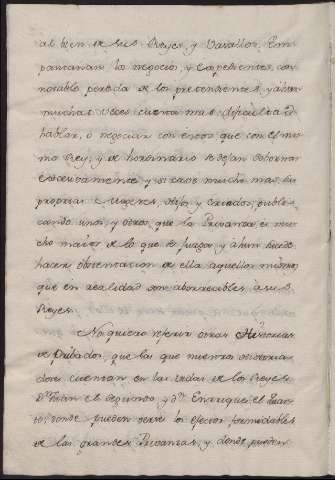 al bien de sus Reyes, y Vasallos. Em
pantanan los negocios, y Expedientes, con
notable perdida de los pretendientes, y áhun
muchas veces cuesta mas dificultad el
hablar, ò negociar con estos que con el mis
mo Rey; y de hordinario se dejan sobornar
excesivamente, y si caso mucho mas, sus
proprias Mugeres, Hijos, y Criados, publi-
cando unos, y otros, que la Privanza es mu
cho maior de lo que se juzga, y áhun
hacer obstentacion de ella aquellos mismos,
que en realidad son aborrecibles, à sus
Reyes.
No quiero referir otras Historias
de Pribados, que las que nuestros Historia
dores cuentan en las vidas de los Reyes
Dⁿ Juan el segundo, y Dⁿ Enrique el quar
to, donde pueden verse los efectos formidables
de las grandes Privanzas, y donde pueden